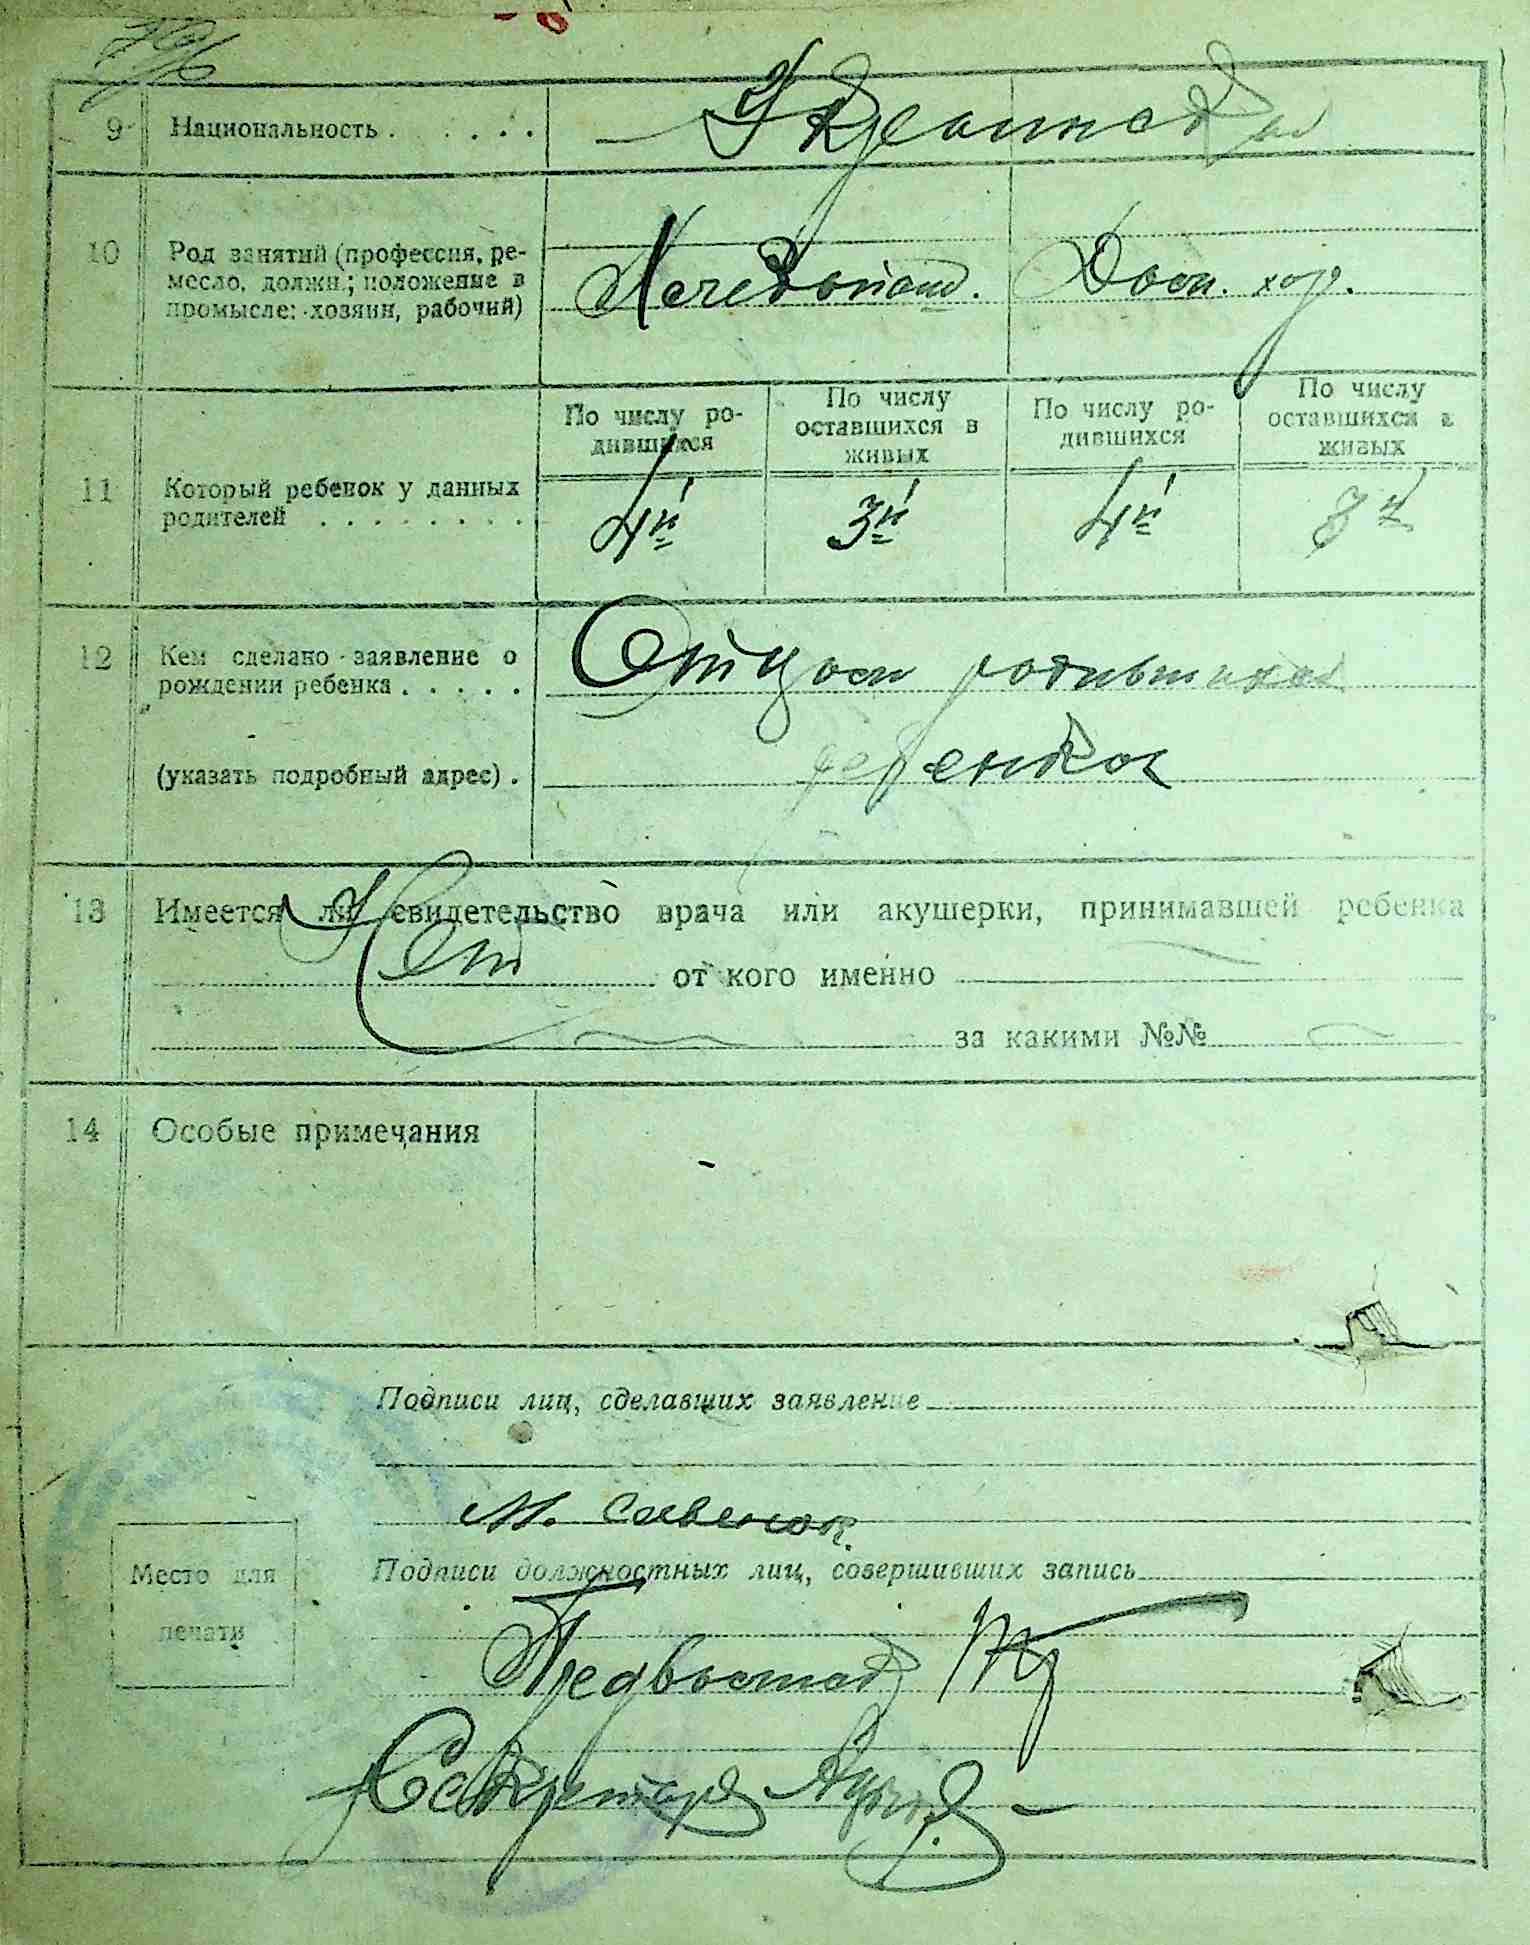 9 Национальность . . . . . .
Украинская
10 Род занятий (профессия, ре-
месло, должн.; положение в
промысле: хозяин, рабочий)
Хлебопаш. Дом. хоз.
11 Который ребенок у данных
родителей . . . . . . . .
По числу ро-
дившихся
По числу
оставшихся в
живых
По числу ро-
дившихся
По числу
оставшихся в
живых
4й 3й 4й 3й
12 Кем сделано заявление о
рождении ребенка . . . . .
(указать подробный адрес) .
Отцом родившихся
ребенка
13 Имеется ли свидетельство врача или акушерки, принимавшей ребенка
Нет от кого именно
за какими №№
14 Особые примечания
Подписи лиц, сделавших заявление
М. Савенок
Подписи должностных лиц, совершивших запись
Место для
печати
Секретарь